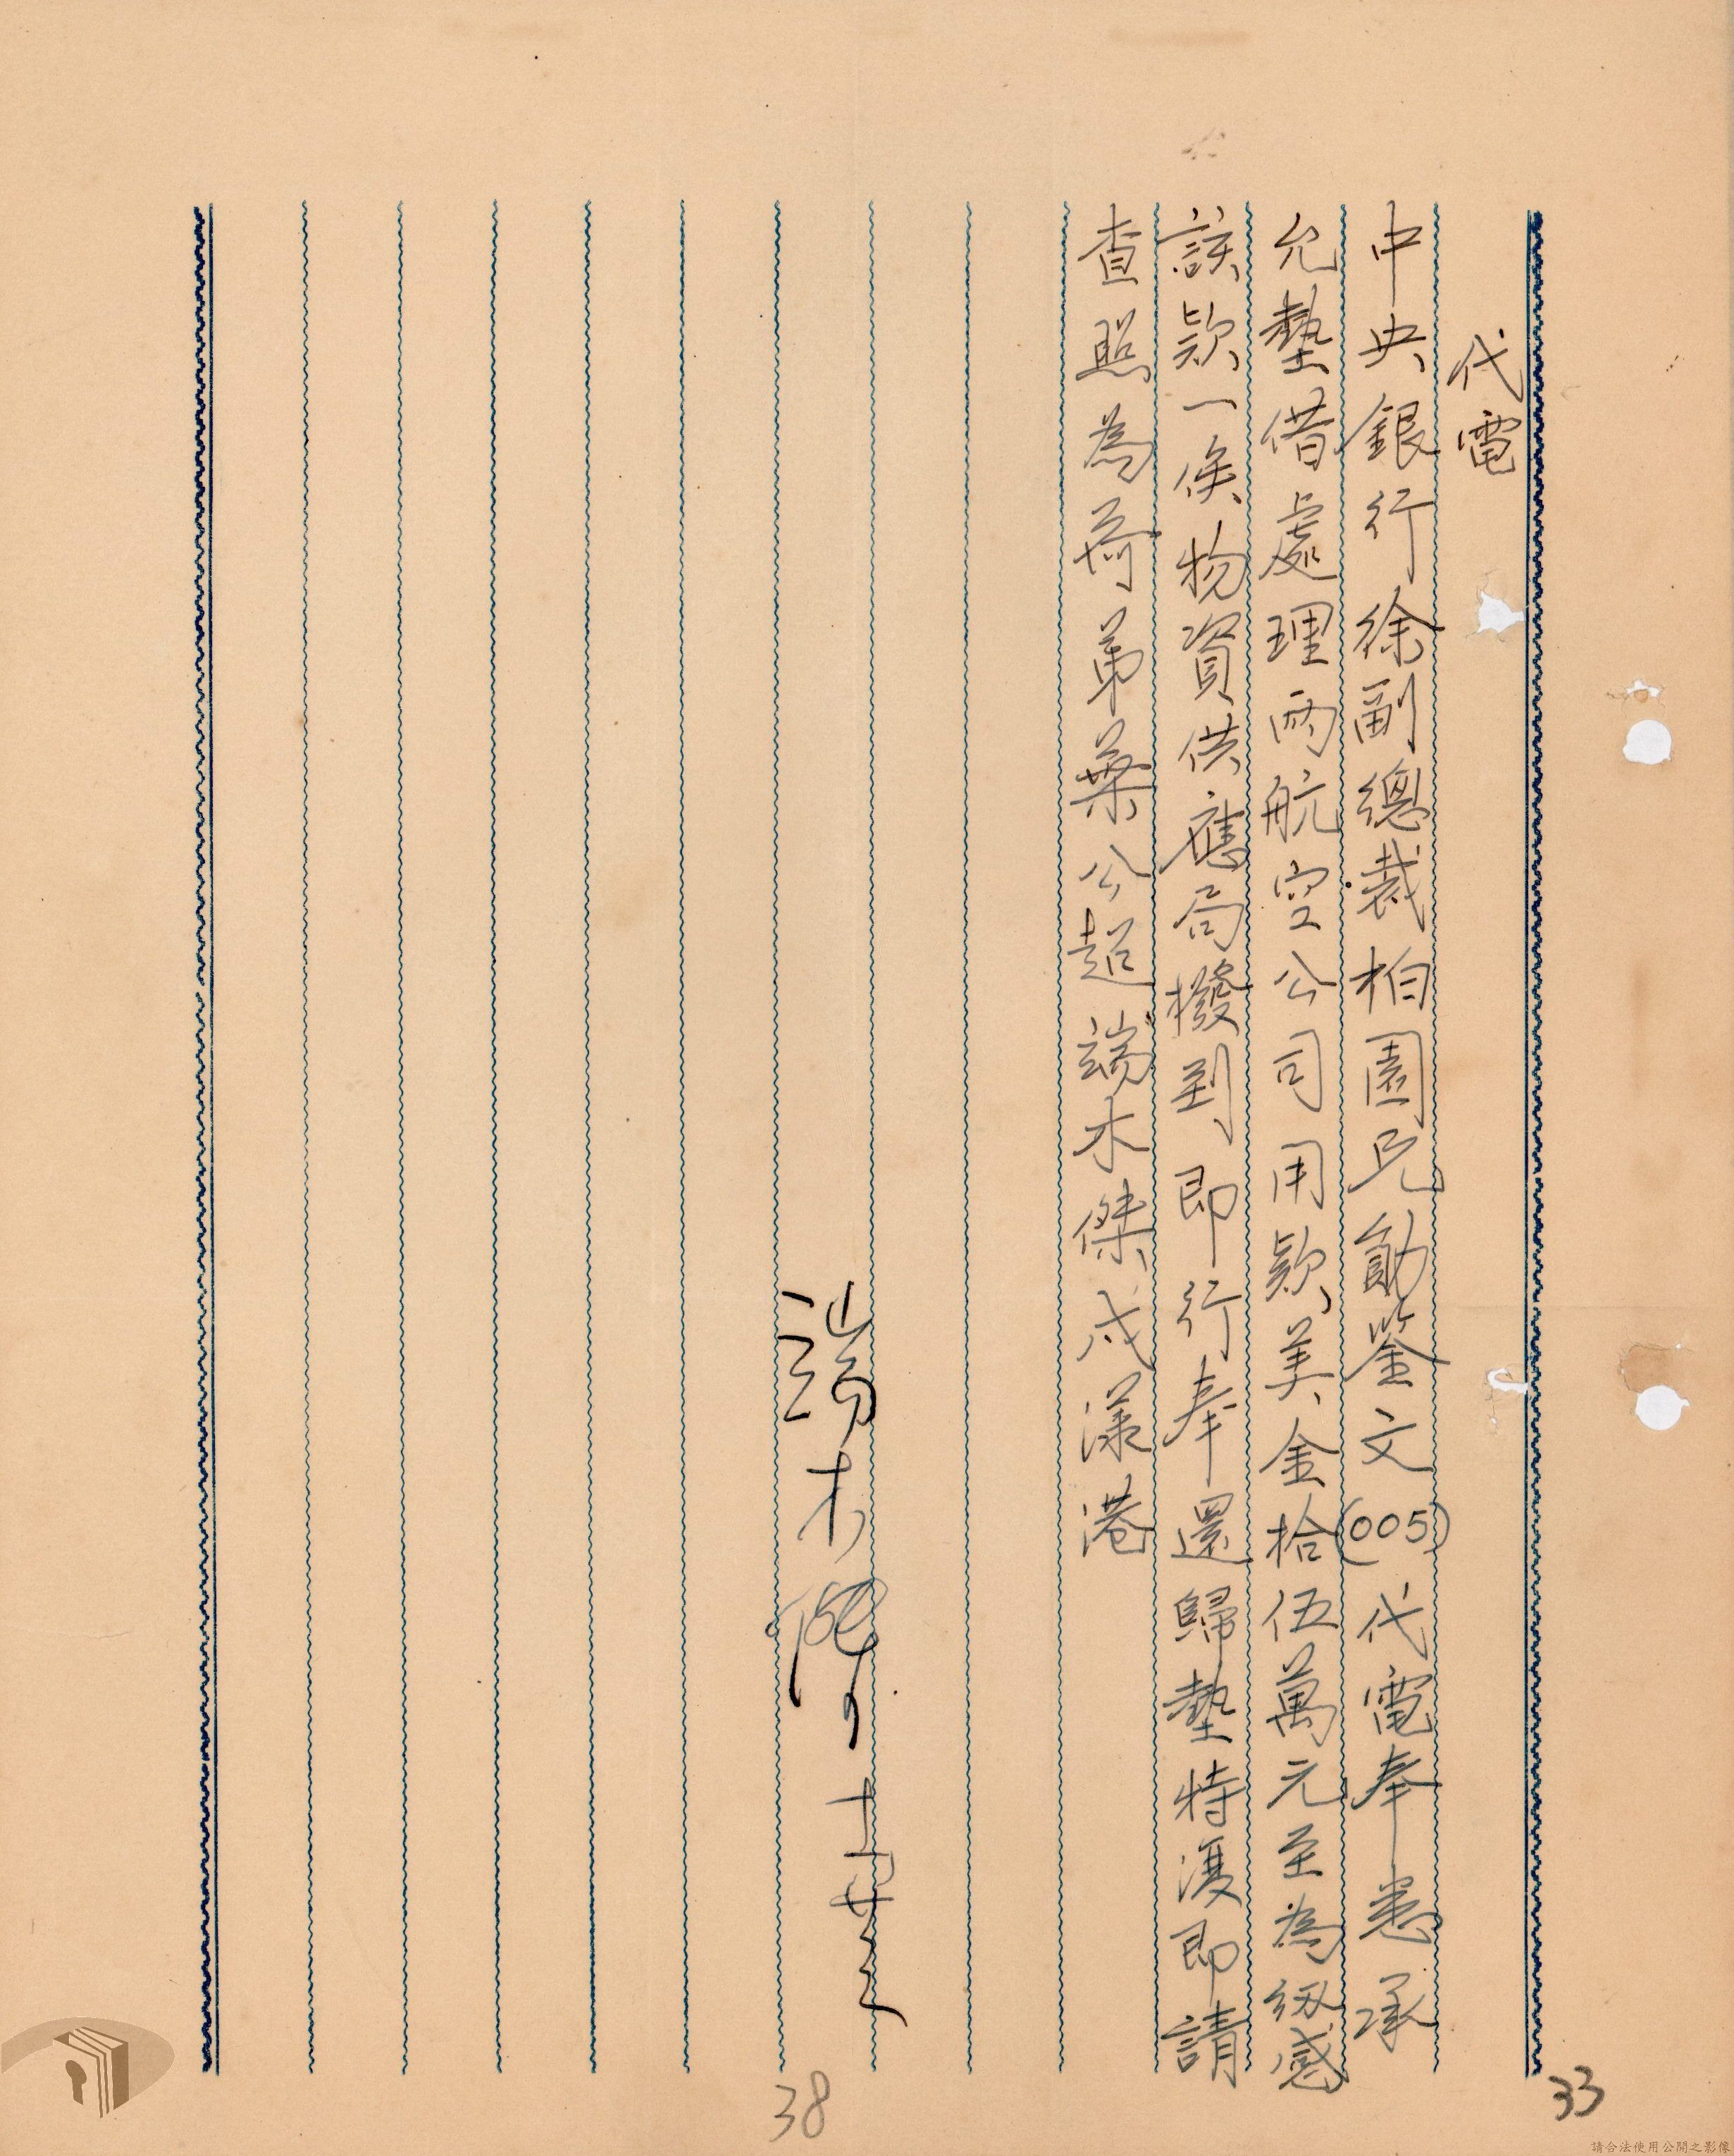 代電
中央銀行徐副總裁柏園兄勛鑒文(005)代電奉悉承
允墊借處理兩航空公司用款美金拾伍萬元至為級感
該款一俟物資供應局撥到即行奉還歸墊特復即請
查照為荷弟葉公超端木傑戌漾港
端木傑
十一廿三
38
33
請合法使用公開之影像